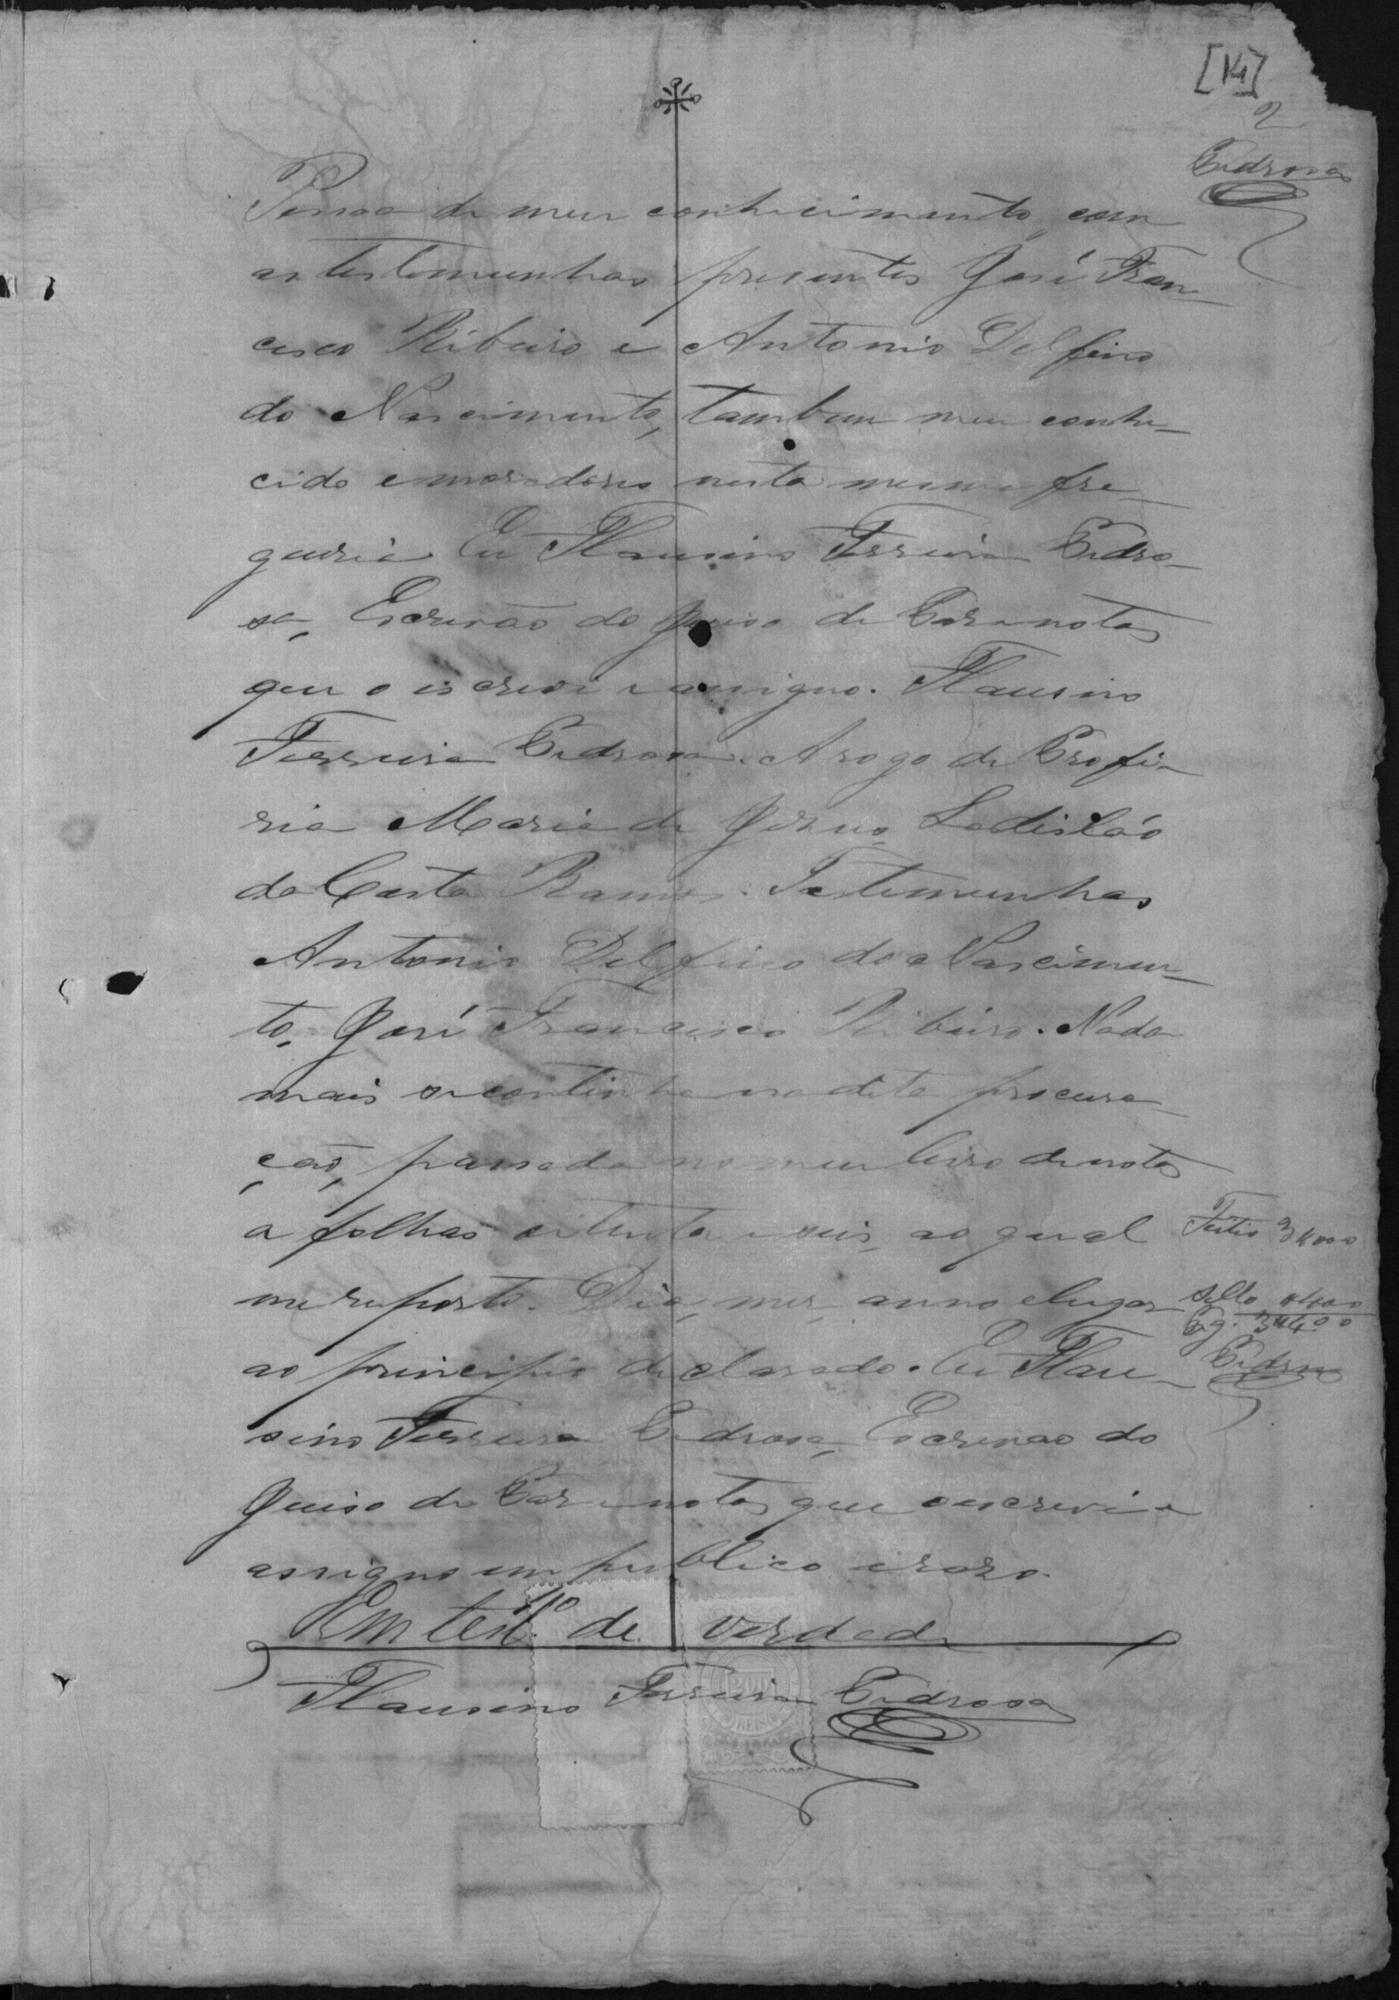 [14]
2
Pedrosa
Pessoa de meu conhecimento, com
as testemunhas presentes José Fran-
cisco Ribeiro e Antonio Delfino
do Nascimento, tambem meu conhe-
cido e moradores nesta mesma fre-
guesia Eu Flausino Ferreira Pedro-
sa, Escrivão do Juiso de Paz e notas
que o escrevi e assigno. Flausino
Ferreira Pedrosa. A rogo de Profi-
ria Maria de Jesus, Ladisláo
da Costa Ramos. Testemunhas
Antonio Delfino do Nascimen-
to, José Francisco Ribeiro. Nada
mais se continha na dita procura-
ção, passada no meu livro de notas
a folhas oitenta e seis, ao qual
me reporto. Dia, mes, anno e lugar
ao principio declarado. Eu Flau-
sino Ferreira Pedrosa, Escrivão do
Juiso de Paz e notas que o escrevi e
assigno em publico e raso.
Em test.º de verdade
Flausino Ferreira Pedrosa
Feitio 3$000
Sello $400
Pg. 3$400
Pedrosa
200
REIS